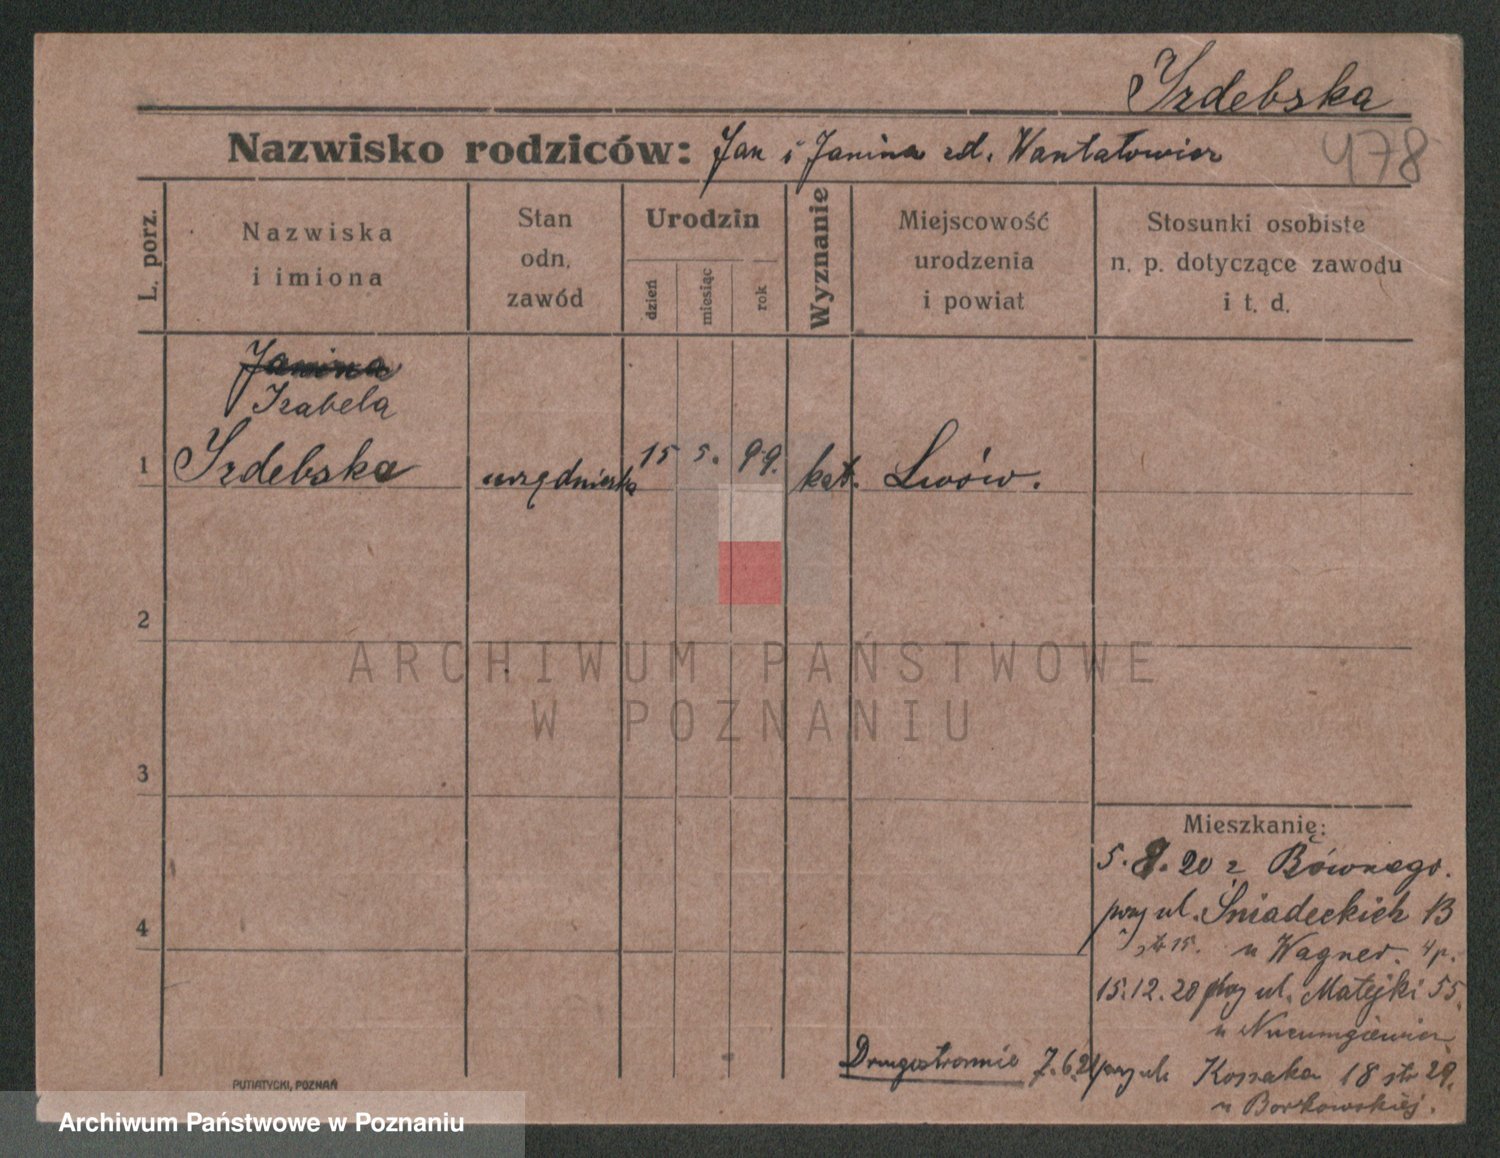 Izdebska
Nazwisko rodziców: Jan i Janina zd. Wantałowicz
478
L. porz.
Nazwiska
i imiona
Stan
odn.
zawód
Urodzin
dzień
miesiąc
rok
Wyznanie
Miejscowość
urodzenia
i powiat
Stosunki osobiste
n. p. dotyczące zawodu
i t. d.
Janina
Izabela
1 Izdebska urzędniczka 15 5. 99. kat. Lwów.
2
3
4
Mieszkanię:
5. 8. 20 z Równego.
przy ul. Śniadeckich B
str 15. u Wagner. 4 p.
15.12.20 przy ul. Matejki 55.
u
Drugostronnie 7.6.21 przy ul. Kossaka 18 str 29.
u Borkowskiej.
PUTIATYCKI, POZNAŃ
ARCHIWUM PAŃSTWOWE
W POZNANIU
Archiwum Państwowe w Poznaniu